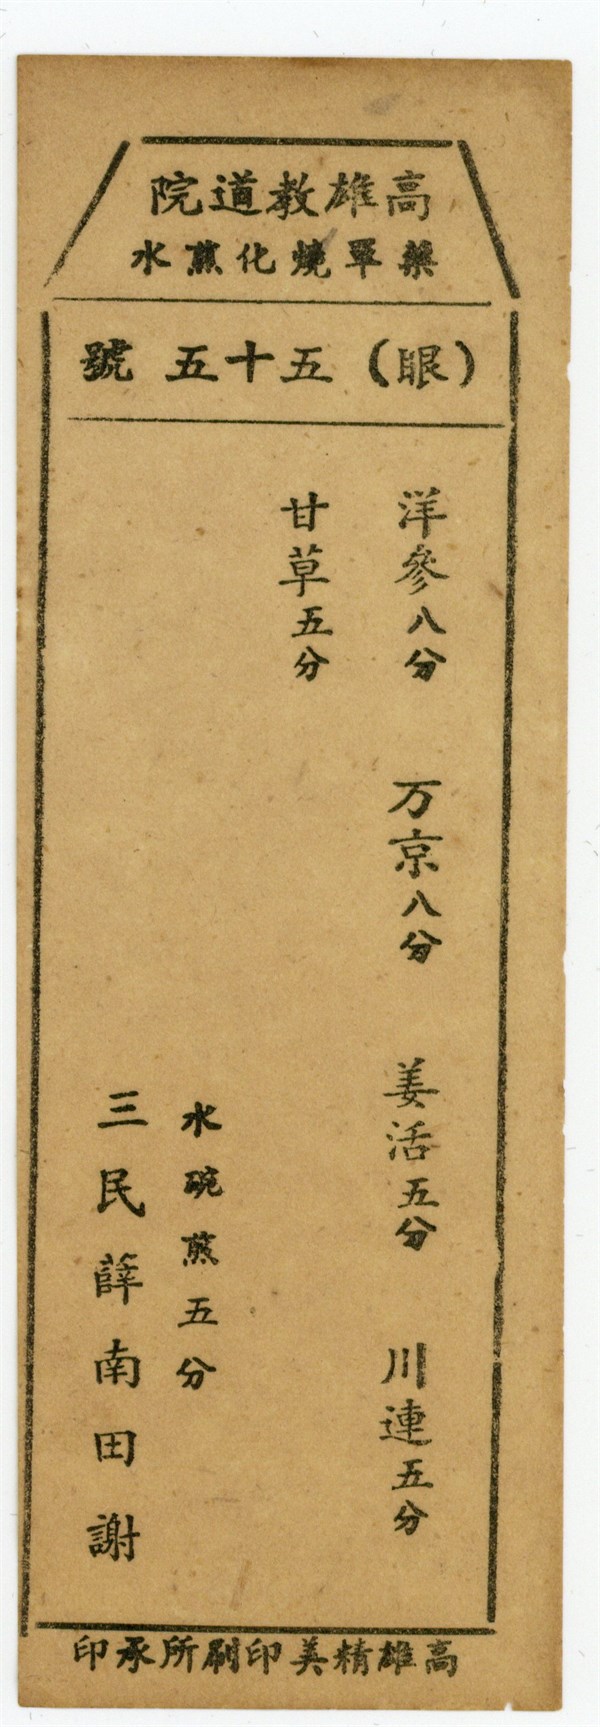 高雄教道院
藥單燒化煎水
(眼)五十五號
洋參八分　万京八分　姜活五分　川連五分
甘草五分
水碗煎五分
三民薛南田謝
高雄精美印刷所承印